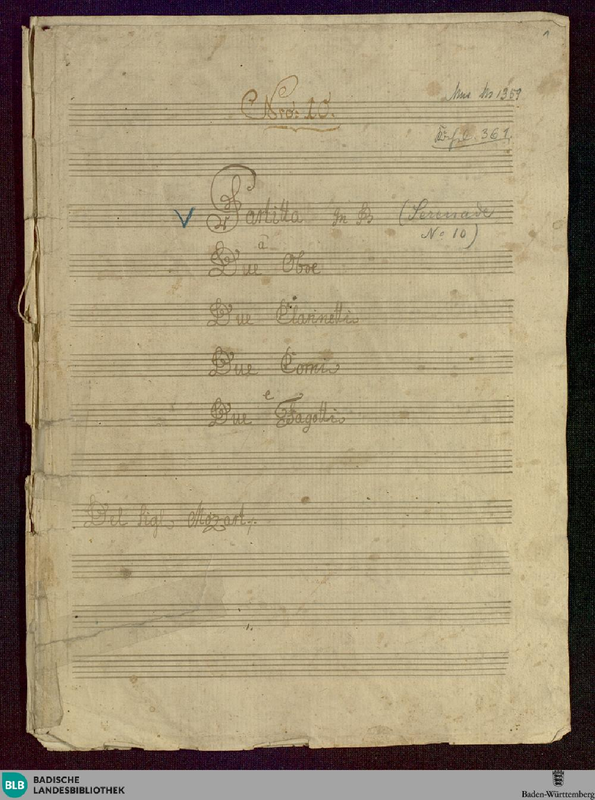 1
Mus. Hs 1359
Nro: 10.
Köch. 361.
V Partitta In B (Serenade
N= 10)
à
Due Oboe
Due Clarinetti
Due Corni
e
Due Fagotti
Del Sigl. Mozart
BLB BADISCHE LANDESBIBLIOTHEK
Baden-Württemberg